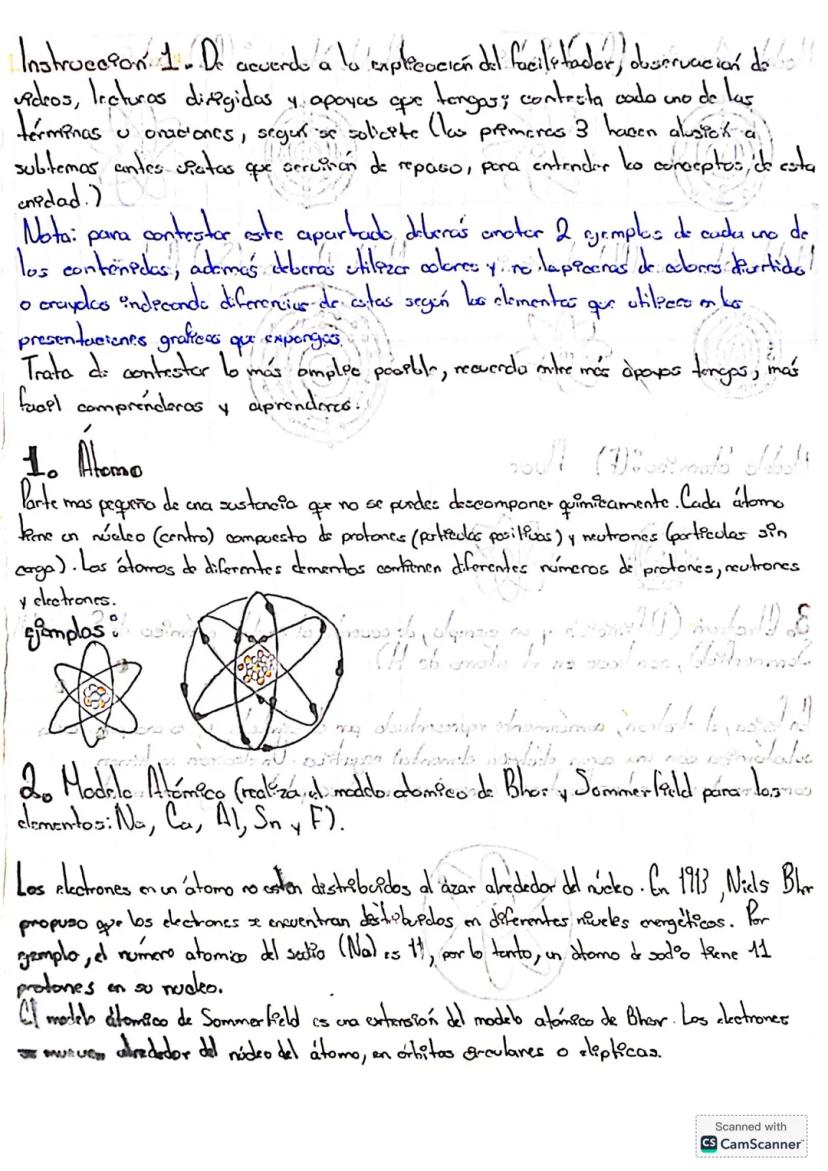 Instrucción 1. De acuerdo a la explicación del facilitador, observación de
videos, lecturas dirigidas y apoyos que tengas; contesta cada uno de los
términos u oraciones, según se solicite (las primeras 3 hacen alusión a
subtemas antes vistas que servirán de repaso, para entender los conceptos, de esta
unidad.)
Nota: para contestar este apartado deberás anotar 2 ejemplos de cada uno de
los contenidos, además deberas utilizar colores y no lapiceras de colores divertido
o crayolas indicando diferencias de estas según los elementos que utilices en las
presentaciones graficas que expongas.
Trata de contestar lo más amplio posible, recuerda entre más apoyos tengas, más
facil comprenderas y aprenderas.
1. Átomo
Parte mas pequeña de una sustancia que no se puedes descomponer químicamente. Cada átomo
tiene un núcleo (centro) compuesto de protones (partículas positivas) y neutrones (partículas sin
carga). Los átomos de diferentes elementos contienen diferentes números de protones, neutrones
y electrones.
ejemplos:
2. Modelo Atómico (realiza el modelo atomico de Bhor y Sommerfield para los
elementos: Na, Ca, Al, Sn y F).
Los electrones en un átomo no estan distribuidos al azar alrededor del núcleo. En 1913, Niels Bhr
propuso que los electrones se encuentran distribuidos en diferentes niveles energéticos. Por
ejemplo, el número atomico del sodio (Na) es 11, por lo tanto, un átomo de sodio tiene 11
protones en su nucleo.
El modelo átomico de Sommerfield es una extensión del modelo atómico de Bhor. Los electrones
se mueven alrededor del núcleo del átomo, en órbitas circulares o elípticas.
Scanned with
CS CamScanner